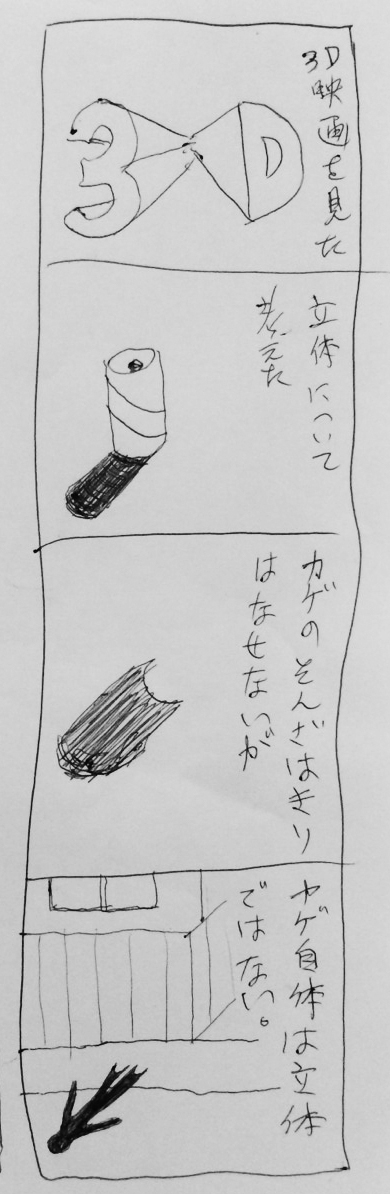 3D映画を見た
3D
立体について
考えた
カゲのそんざはきり
はなせないが
カゲ自体は立体
ではない。